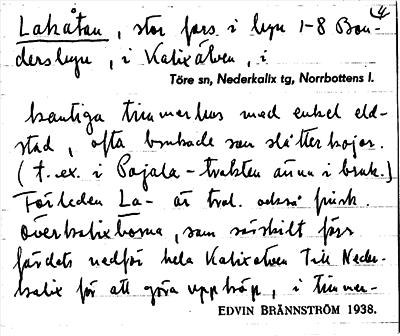 4
Lakåtan, stor fors i byn 1-8 Bon-
dersbyn, i Kalixälven, i
Töre sn, Nederkalix tg, Norrbottens l.
kantiga timmerhus med enkel eld-
stad, ofta brukade som slåtterkojor.
(t.ex. i Pajala-trakten ännu i bruk.)
Förleden La- är trol. också finsk.
Överkalixborna, som särskilt förr
färdats nedför hela Kalixälven till Neder-
kalix för att göra uppköp, i timmer-
EDVIN BRÄNNSTRÖM 1938.